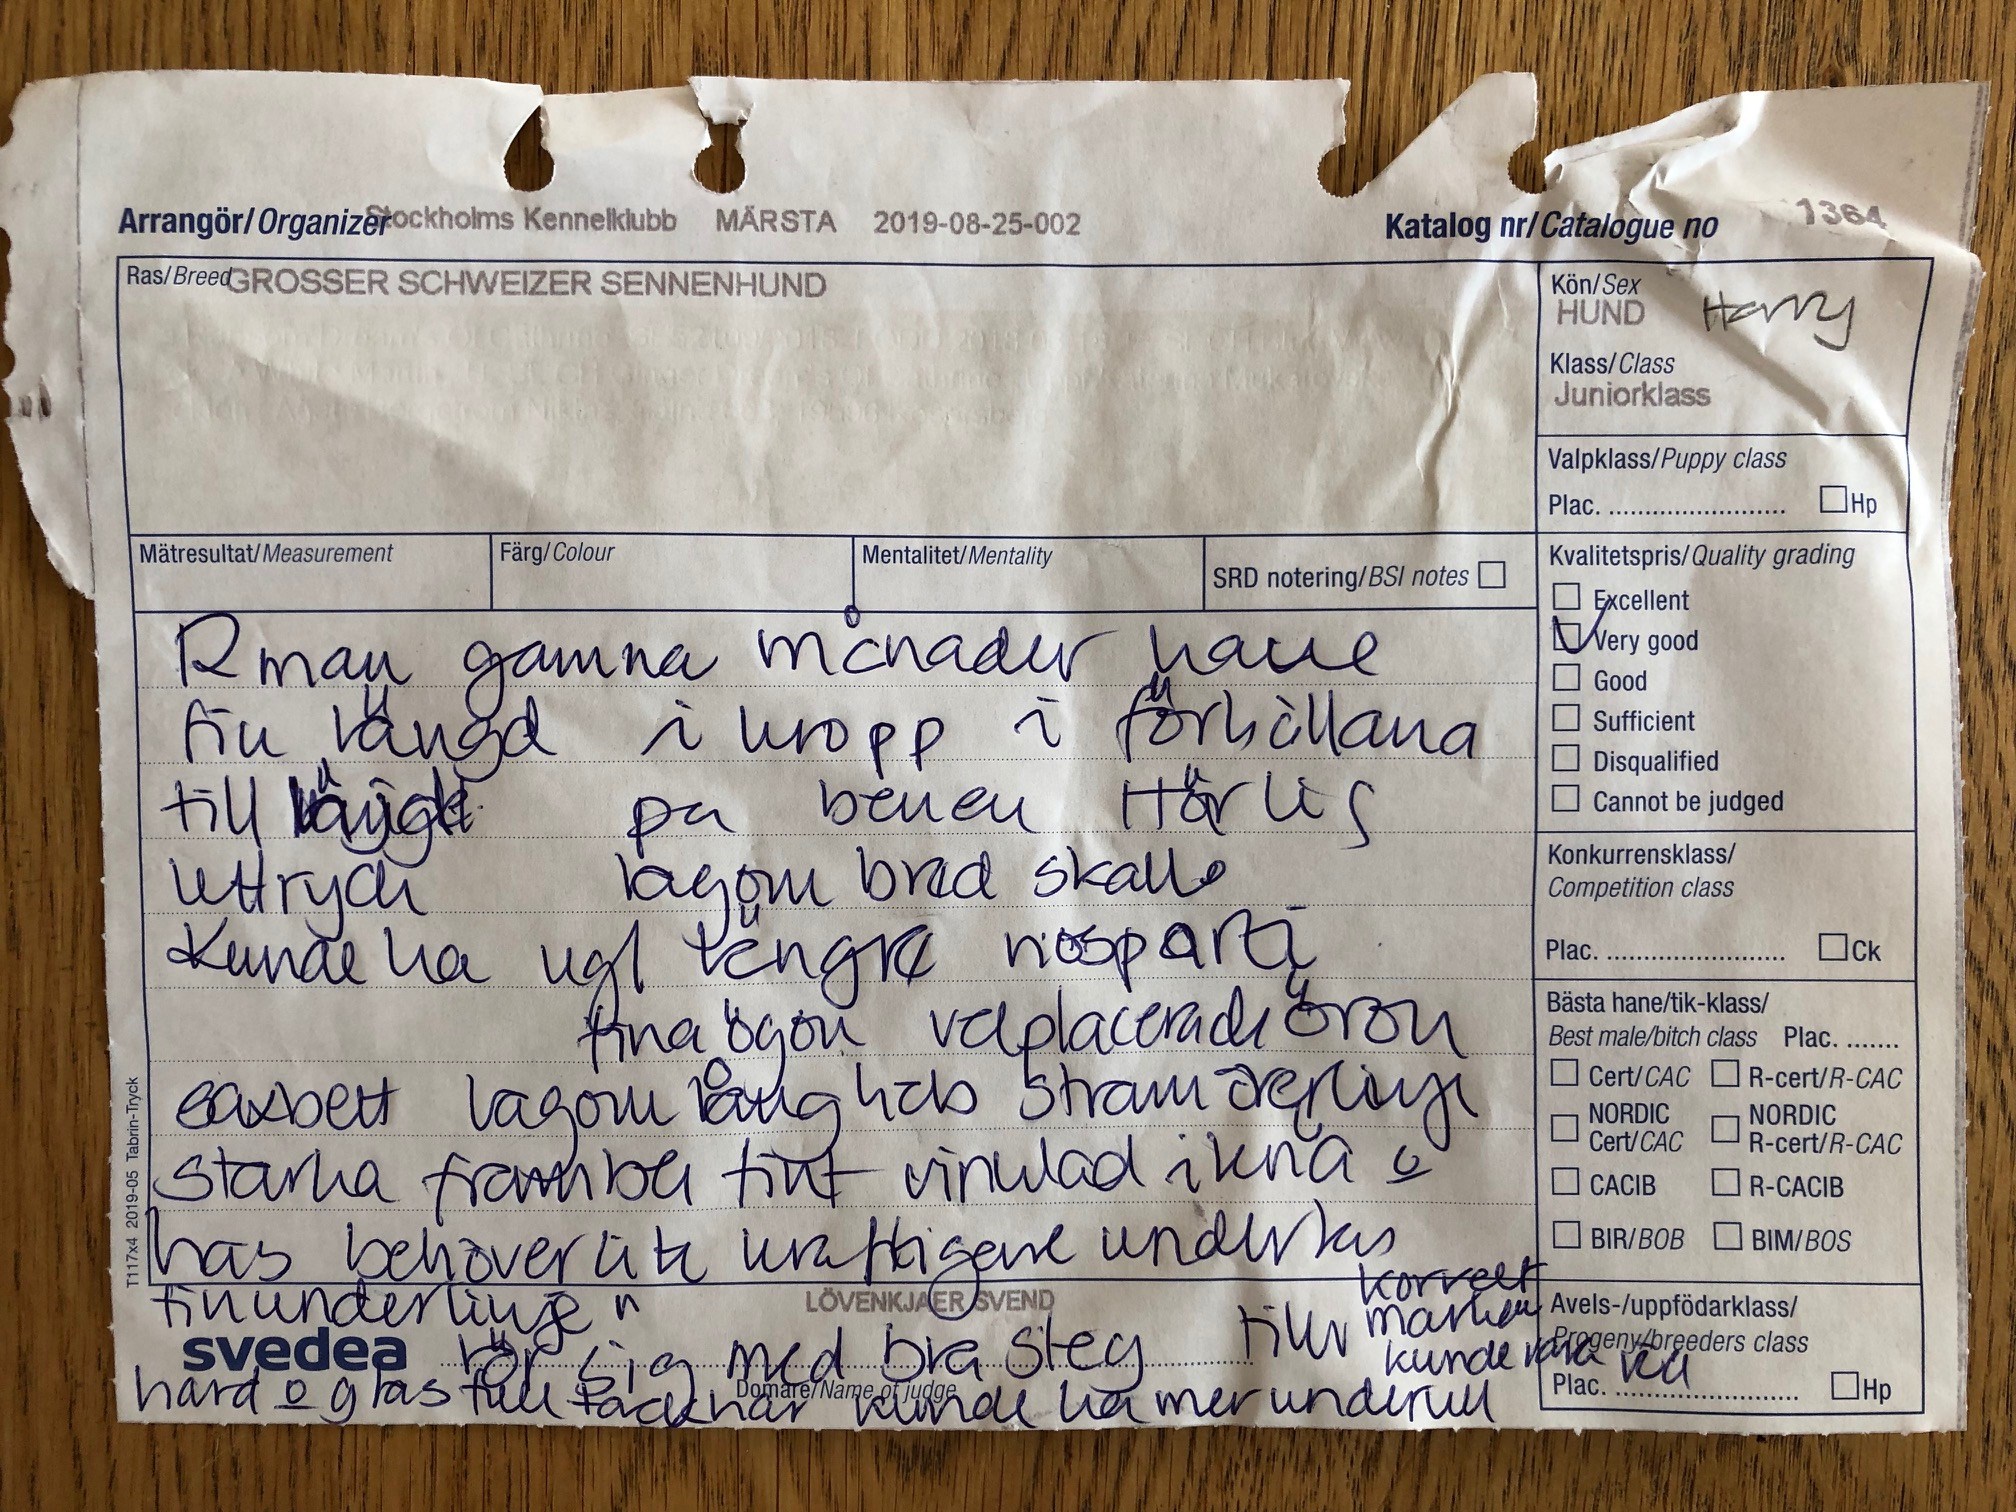 Arrangör/Organizer Stockholms Kennelklubb MÄRSTA 2019-08-25-002 Katalog nr/Catalogue no 1364
Ras/Breed GROSSER SCHWEIZER SENNENHUND
Kön/Sex
HUND Harry
Klass/Class
Juniorklass
Valpklass/Puppy class
Plac. ........................ Hp
Mätresultat/Measurement Färg/Colour Mentalitet/Mentality SRD notering/BSI notes
Kvalitetspris/Quality grading
Excellent
Very good
Good
Sufficient
Disqualified
Cannot be judged
Konkurrensklass/
Competition class
Plac. ........................ Ck
Bästa hane/tik-klass/
Best male/bitch class Plac. .......
Cert/CAC R-cert/R-CAC
NORDIC Cert/CAC NORDIC R-cert/R-CAC
CACIB R-CACIB
BIR/BOB BIM/BOS
Avels-/uppfödarklass/
Progeny/breeders class
Plac. ........................ Hp
gamna månader hane
fin längd i kropp i förhållana
till på benen Härlig
uttryck lagom bred skalle
Kunde ha ngt längre nosparti
fina ögon välplacerade öron
saxbett lagom lång hals stram överlinje
starka framben fint vinklad i knä o
has behöver lite kraftigare underkäs
fin underlinje
LÖVENKJAER SVEND
rör sig med bra steg korrekt
marken
kunde vara
hård o täckhår kunde ha mer underull
svedea
Domare/Name of judge
T117x4 2019-05 Tabrin-Tryck